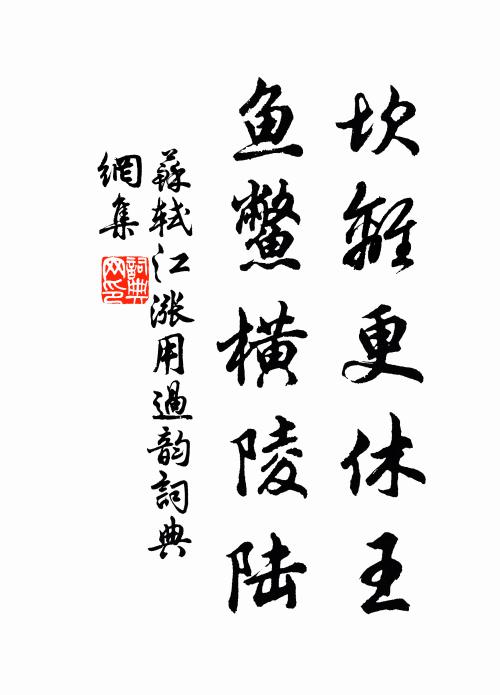 坎離更休王
鱼鳖橫陵陆
蘇軾江漲用過韵詞典
網集
詞典網印